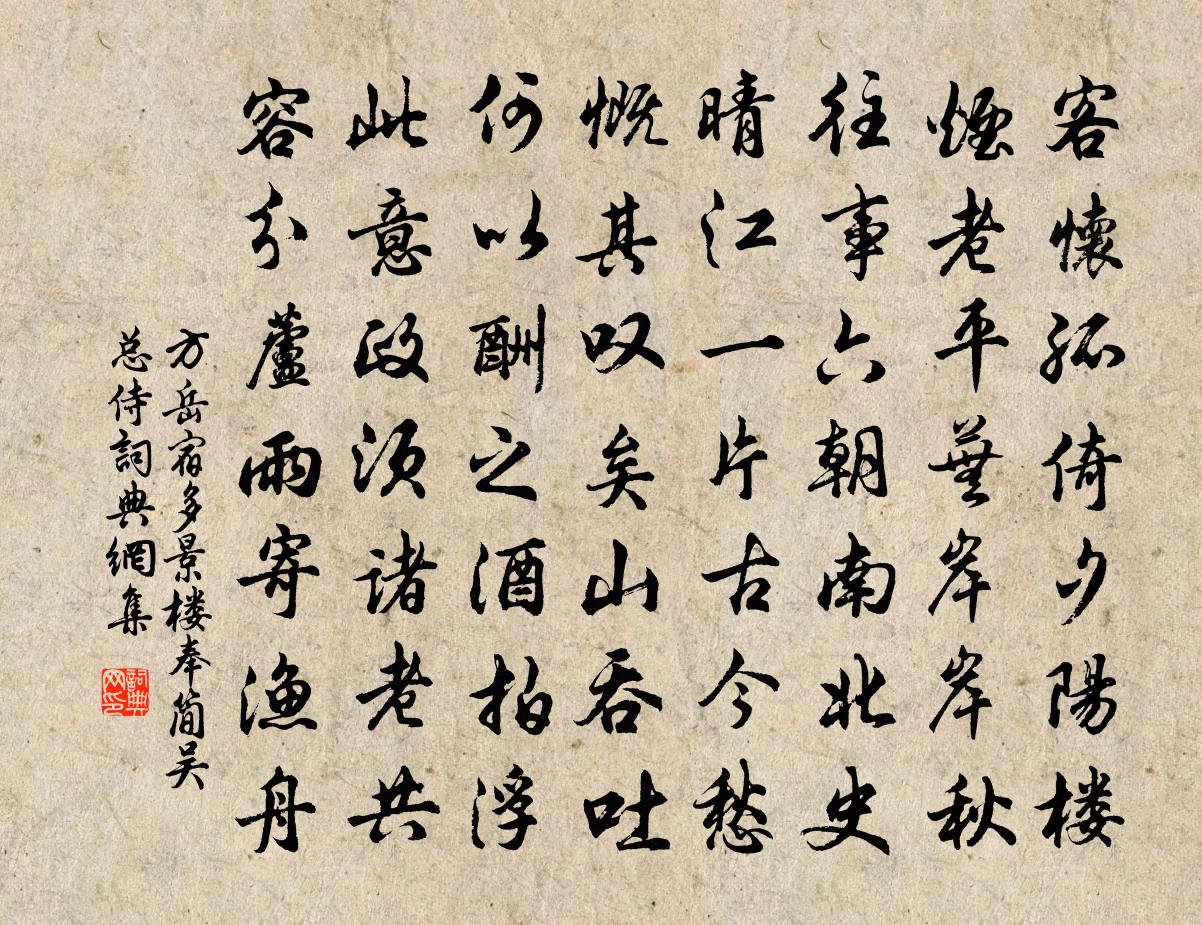 客懷孤倚夕陽楼
煙老平蕪岸岸秋
往事六朝南北史
晴江一片古今愁
慨其叹矣山吞吐
何以酬之酒拍浮
此意政须諸老共
容分蘆雨寄漁舟
方岳宿多景楼奉简吴
总侍詞典網集
詞典网印